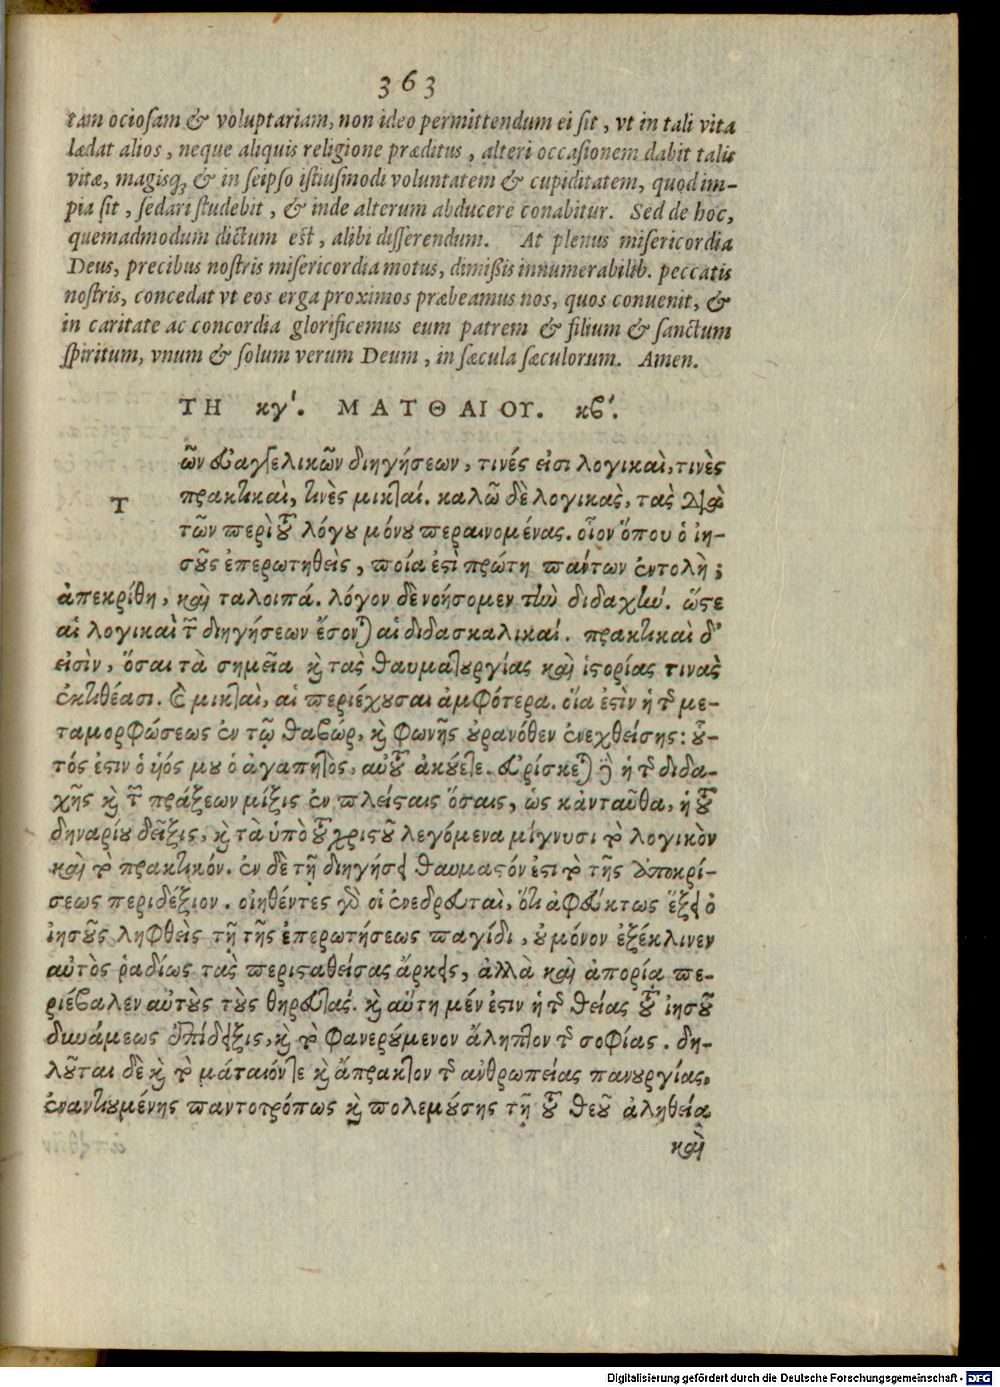 363
tam ociosam & voluptariam, non ideo permittendum ei sit, vt in tali vita
lædat alios, neque aliquis religione præditus, alteri occasionem dabit talis
vitæ, magisq; & in seipso istiusmodi voluntatem & cupiditatem, quod im-
pia sit, sedari studebit, & inde alterum abducere conabitur. Sed de hoc,
quemadmodum dictum est, alibi disserendum. At plenus misericordia
Deus, precibus nostris misericordia motus, dimißis innumerabilib. peccatis
nostris, concedat vt eos erga proximos præbeamus nos, quos conuenit, &
in caritate ac concordia glorificemus eum patrem & filium & sanctum
spiritum, vnum & solum verum Deum, in sæcula sæculorum. Amen.
ΤΗ κγ'. ΜΑΤΘΑΙΟΥ. κβ'.
Τ
ῶν εὐαγγελικῶν διηγήσεων, τινές εἰσι λογικαὶ, τινὲς
πρακτικαὶ, τινὲς μικταί. καλῶ δὲ λογικὰς, τὰς διὰ
τῶν περὶ τοῦ λόγου μόνου περαινομένας. οἷον ὅπου ὁ ἰη-
σοῦς ἐπερωτηθεὶς, ποία ἐστὶ πρώτη πάντων ἐντολὴ;
ἀπεκρίθη, καὶ ταλοιπά. λόγον δὲ νοήσομεν τὴν διδαχήν. ὥστε
αἱ λογικαὶ τῶν διηγήσεων ἔσονται αἱ διδασκαλικαί. πρακτικαὶ δ'
εἰσὶν, ὅσαι τὰ σημεῖα καὶ τὰς θαυματουργίας καὶ ἱστορίας τινὰς
ἐκτιθέασι. μικταὶ, αἱ περιέχουσαι ἀμφότερα. οἵα ἐστὶν ἡ τῆς με-
ταμορφώσεως ἐν τῷ θαβώρ, καὶ φωνῆς οὐρανόθεν ἐνεχθείσης: οὗ-
τός ἐστιν ὁ ὑιός μου ὁ ἀγαπητὸς, αὐτοῦ ἀκούετε. εὑρίσκεται ἡ τῆς διδα-
χῆς καὶ τῶν πράξεων μίξις ἐν πλείσταις ὅσαις, ὡς κἀνταῦθα, ἡ τοῦ
δηναρίου δεῖξις, καὶ τὰ ὑπὸ τοῦ χριστοῦ λεγόμενα μίγνυσι τὸ λογικὸν
καὶ τὸ πρακτικόν. ἐν δὲ τῇ διηγήσει θαυμαστόν ἐστι τὸ τῆς ἀποκρί-
σεως περιδέξιον. οἰηθέντες γὰρ οἱ ἐνεδρευταὶ, ὅτι ἀφεύκτως ἕξει ὁ
ἰησοῦς ληφθεὶς τῇ τῆς ἐπερωτήσεως παγίδι, οὐ μόνον ἐξέκλινεν
αὐτὸς ῥαδίως τὰς περισταθείσας ἄρκεις, ἀλλὰ καὶ ἀπορία πε-
ριέβαλεν αὐτοὺς τοὺς θηρευτάς. καὶ αὕτη μέν ἐστιν ἡ τῆς θείας τοῦ ἰησοῦ
δυνάμεως ἐπίδειξις, καὶ τὸ φανερούμενον ἄληπτον τῆς σοφίας. δη-
λοῦται δὲ καὶ τὸ μάταιόν τε καὶ ἄπρακτον τῆς ἀνθρωπείας πανουργίας,
ἐναντιουμένης παντοτρόπως καὶ πολεμούσης τῇ τοῦ θεοῦ ἀληθεία
καὶ
Digitalisierung gefördert durch die Deutsche Forschungsgemeinschaft - DFG